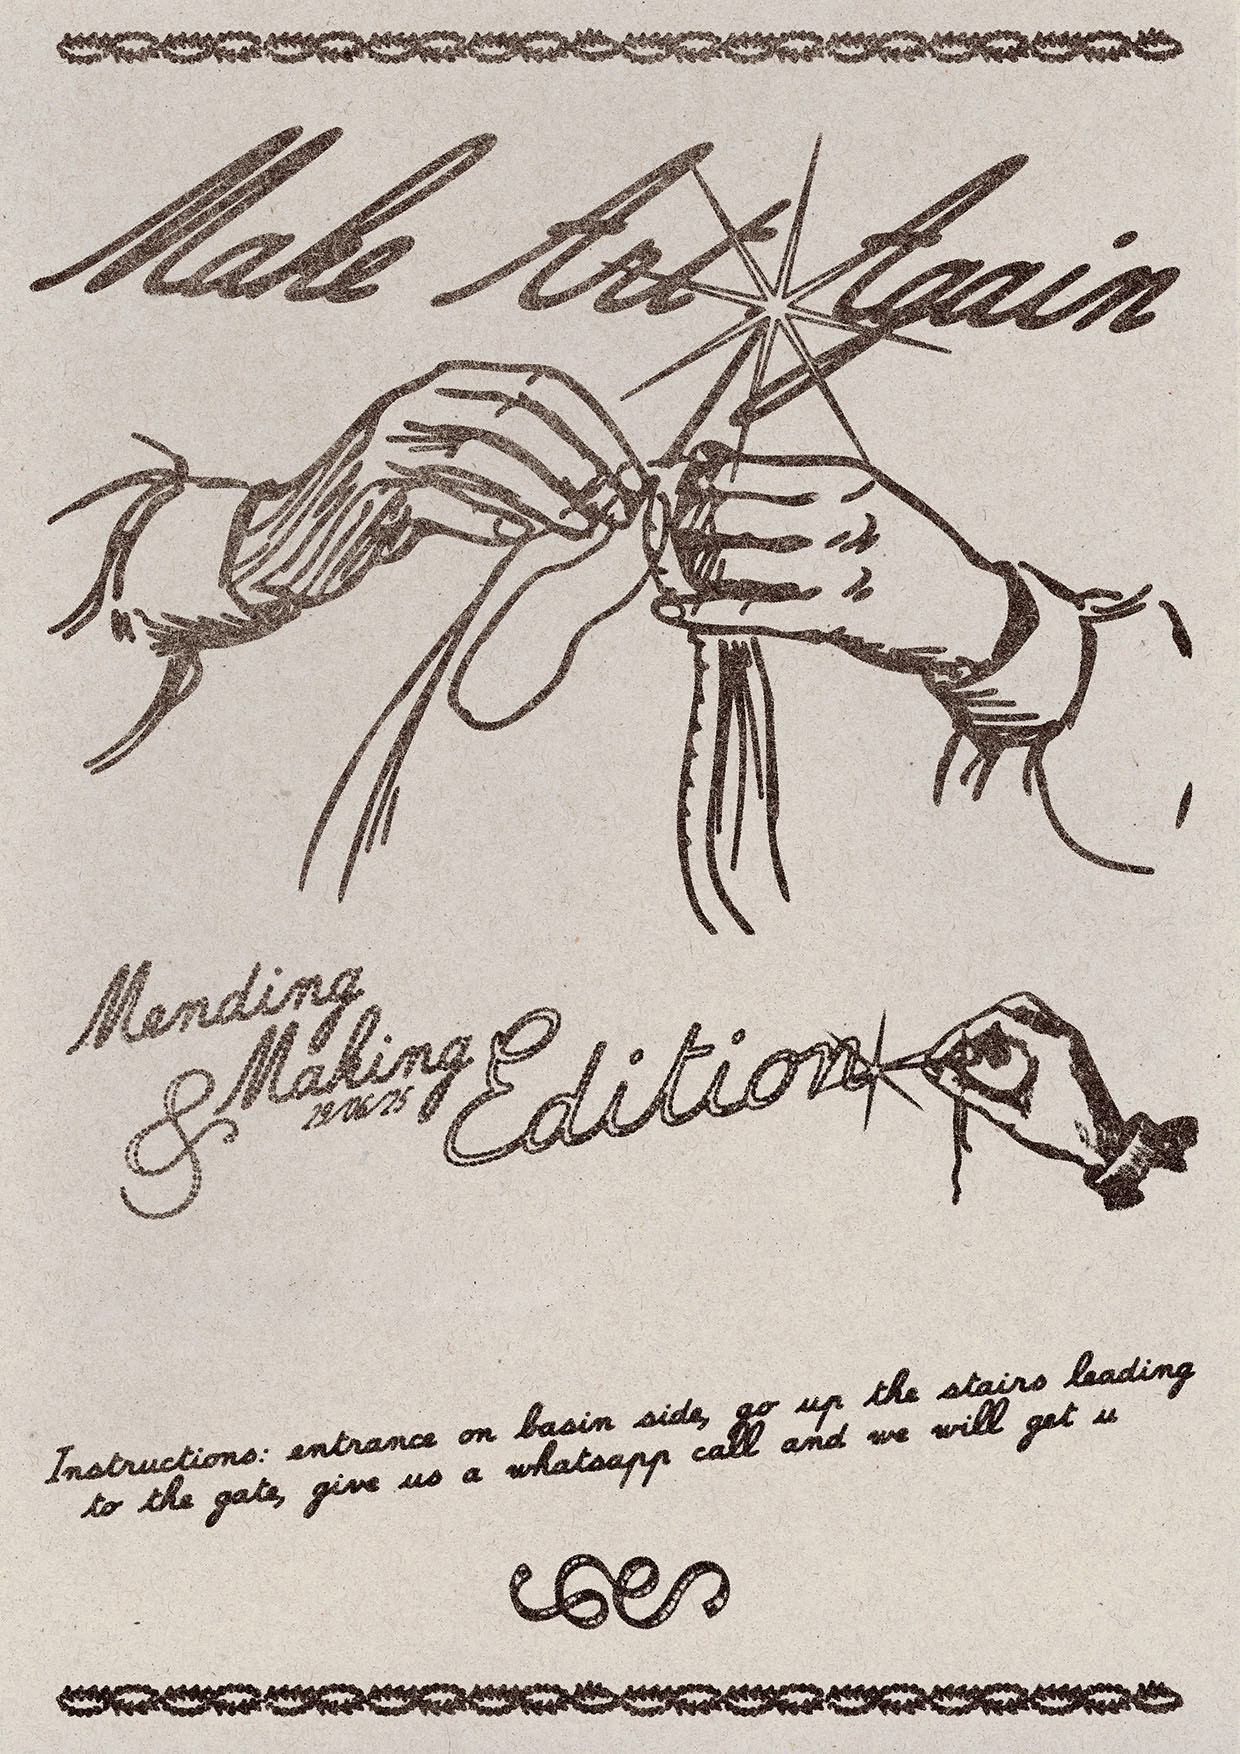 Make Art Again
Mending
& Making
Edition
Instructions: entrance on basin side, go up the stairs leading
to the gate, give us a whatsapp call and we will get u